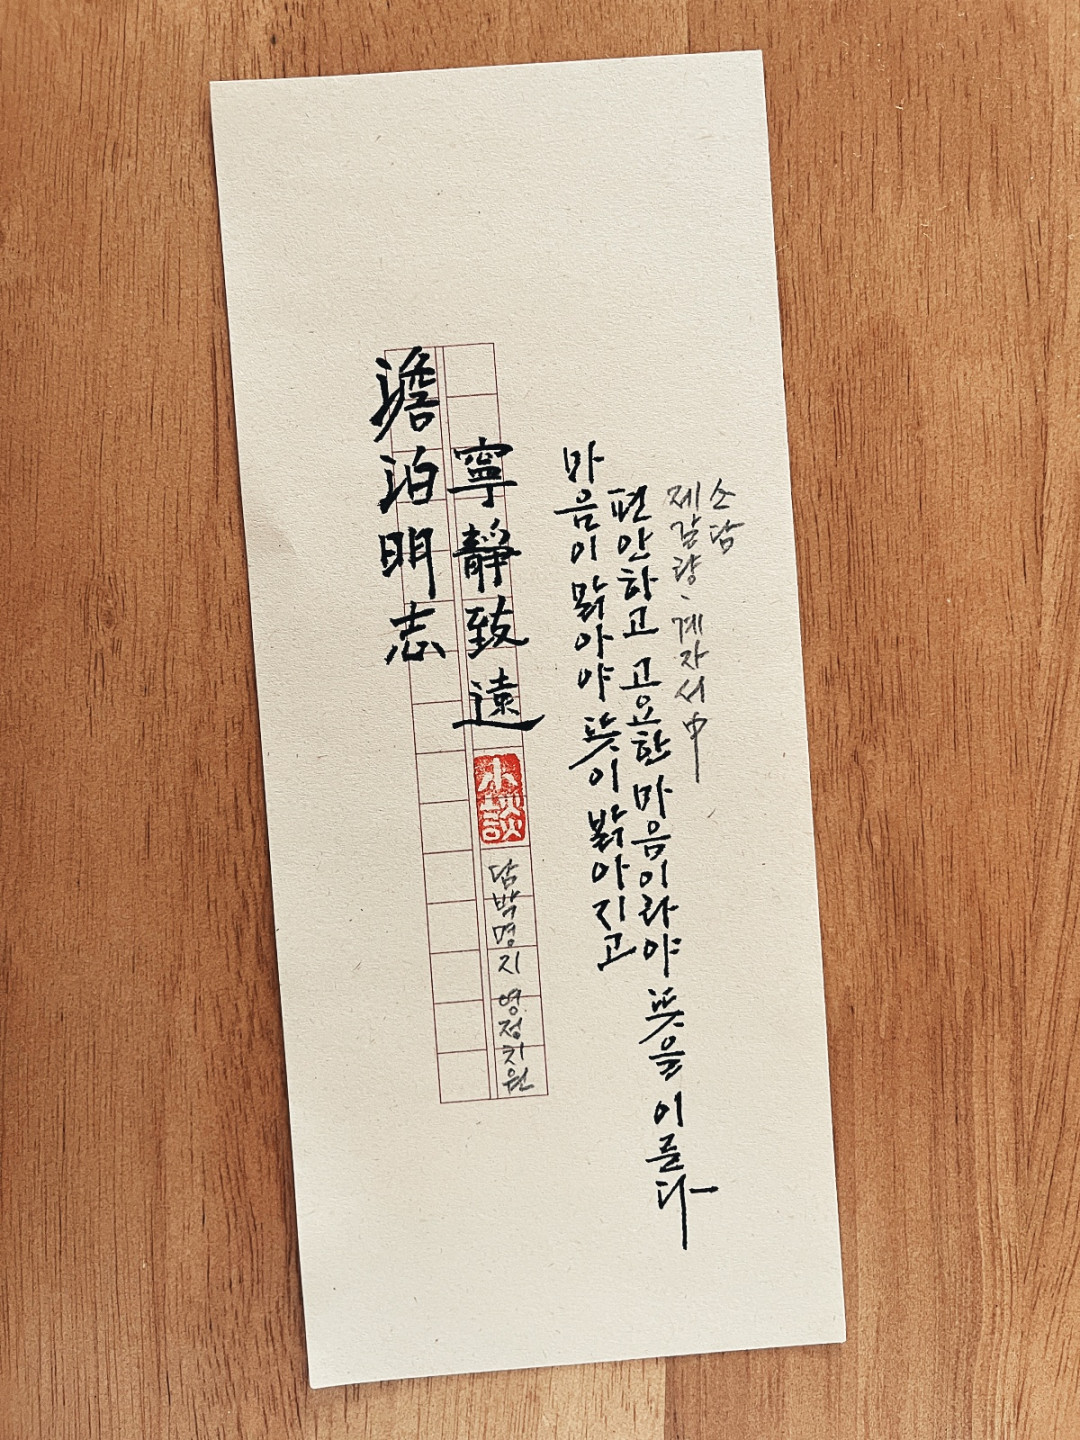 澹泊明志
寧靜致遠
小談
담박명지 영정치원
마음이 맑아야 뜻이 밝아지고
편안하고 고요한 마음이라야 뜻을 이룬다
제갈량, 계자서 中
소담